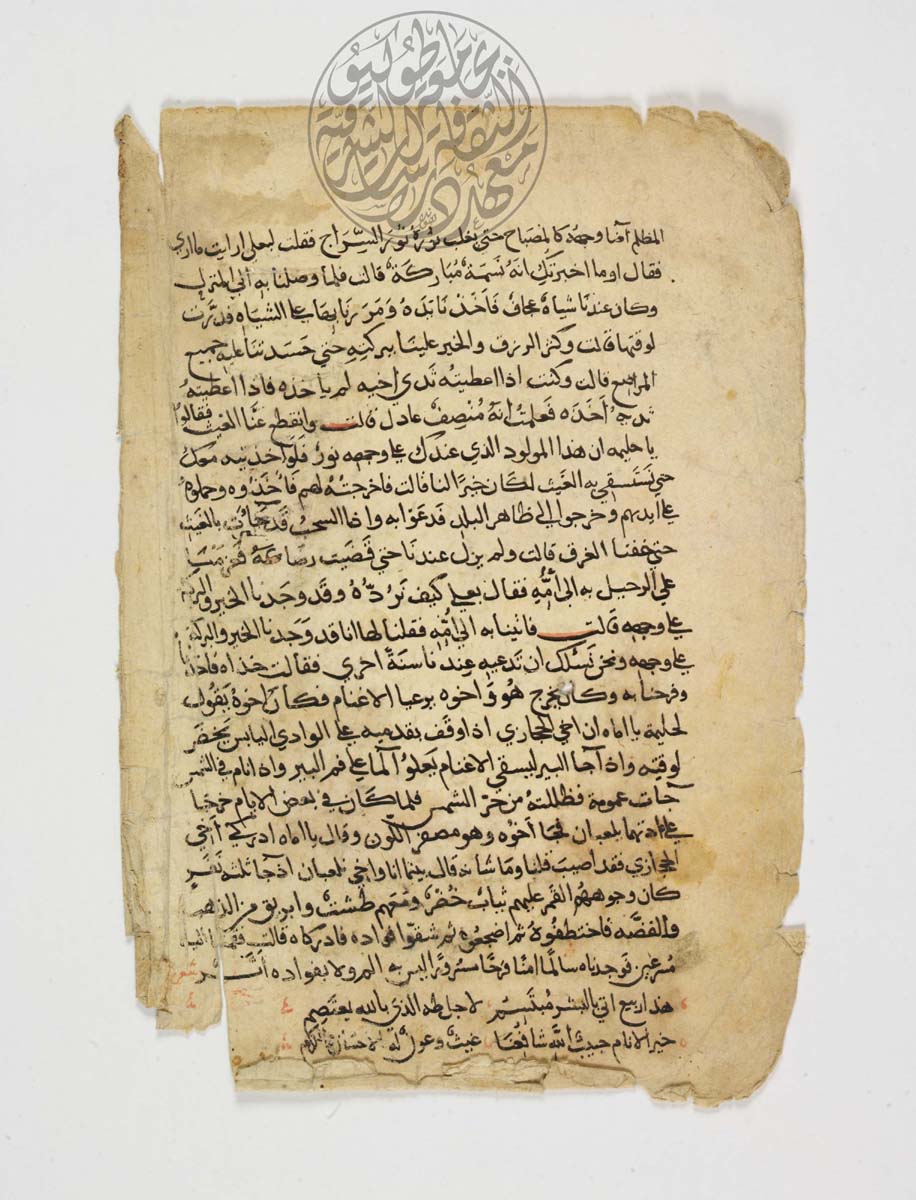 جامعة طوكيو
معهد دراسات الثقافة الشرقية
المظلم اضا وجهه كالمصباح حتي يغلب نوره نور السراج فقلت لبعلي ارايت ما اري
فقال اوما اخبرتكِ انه نسمة مباركة قالت فلما وصلنا به الي المنزل
وكان عندنا شياه عجاف فاخذنا يده ومررنا بها علي الشياه فدرت
لوقتها قالت وكثر الرزق والخير علينا ببركته حتي حسدتنا عليه جميع
المراضع قالت وكنت اذا اعطيته ثدي اخيه لم ياخذه فاذا اعطيته
ثديه اخذه فعلمت انه منصف عادل قالت وانقطع عنا الغيث فقالوا
يا حليمه ان هذا المولود الذي عندك علي وجهه نور فلو اخذتيه معك
حتي نستسقي به الغيث لكان خيرا لنا قالت فاخرجته لهم فاخذوه وحملوه
علي ايديهم وخرجوا الي ظاهر البلد فدعوا به واذا السحب قد جاءت بالغيث
حتي خفنا الغرق قالت ولم يزل عندنا حتي قضيت رضاعه فعزمنا
علي الرحيل به الي امه فقال بعلي كيف نرده وقد وجدنا الخير والبركة
علي وجهه قالت فاتينا به الي امه فقلنا لها انا قد وجدنا الخير والبركة
علي وجهه ونحن نسئلك ان تدعيه عندنا سنة اخري فقالت خذاه فاخذناه
وفرحنا به وكان يخرج هو واخوه يرعيا الاغنام فكان اخوه يقول
لحليمة يا اماه ان اخي الحجازي اذا وقف بقدميه علي الوادي اليابس يخضر
لوقته واذا جا البير ليسقي الاغنام يعلو الما علي فم البير واذا نام في الشمس
جات غمومة فظللته من حر الشمس فلما كان في بعض الايام خرجا
علي عادتهما يلعبان فجا اخوه وهو مصفر اللون وقال يا اماه ادركي اخي
الحجازي فقد اصيب قلنا وما شانه قال بينما انا واخي نلعبان اذ جا ثلثه نفر
كان وجوههم القمر عليهم ثياب خضر ومعهم طشت وابريق من الذهب
والفضه فاختطفوه ثم اضجعوه ثم شقوا فواده فادركاه قالت فقمنا اليه
مسرعين فوجدناه سالما امنا فرحا مسرورا ليس به الم ولا بفواده اثر شعر
هذا ربيع اتي بالبشر مبتسم لاجل طه الذي بالله يعتصم
خير الانام حبيب الله شافعنا غيث وعون له الاحسان والكرم